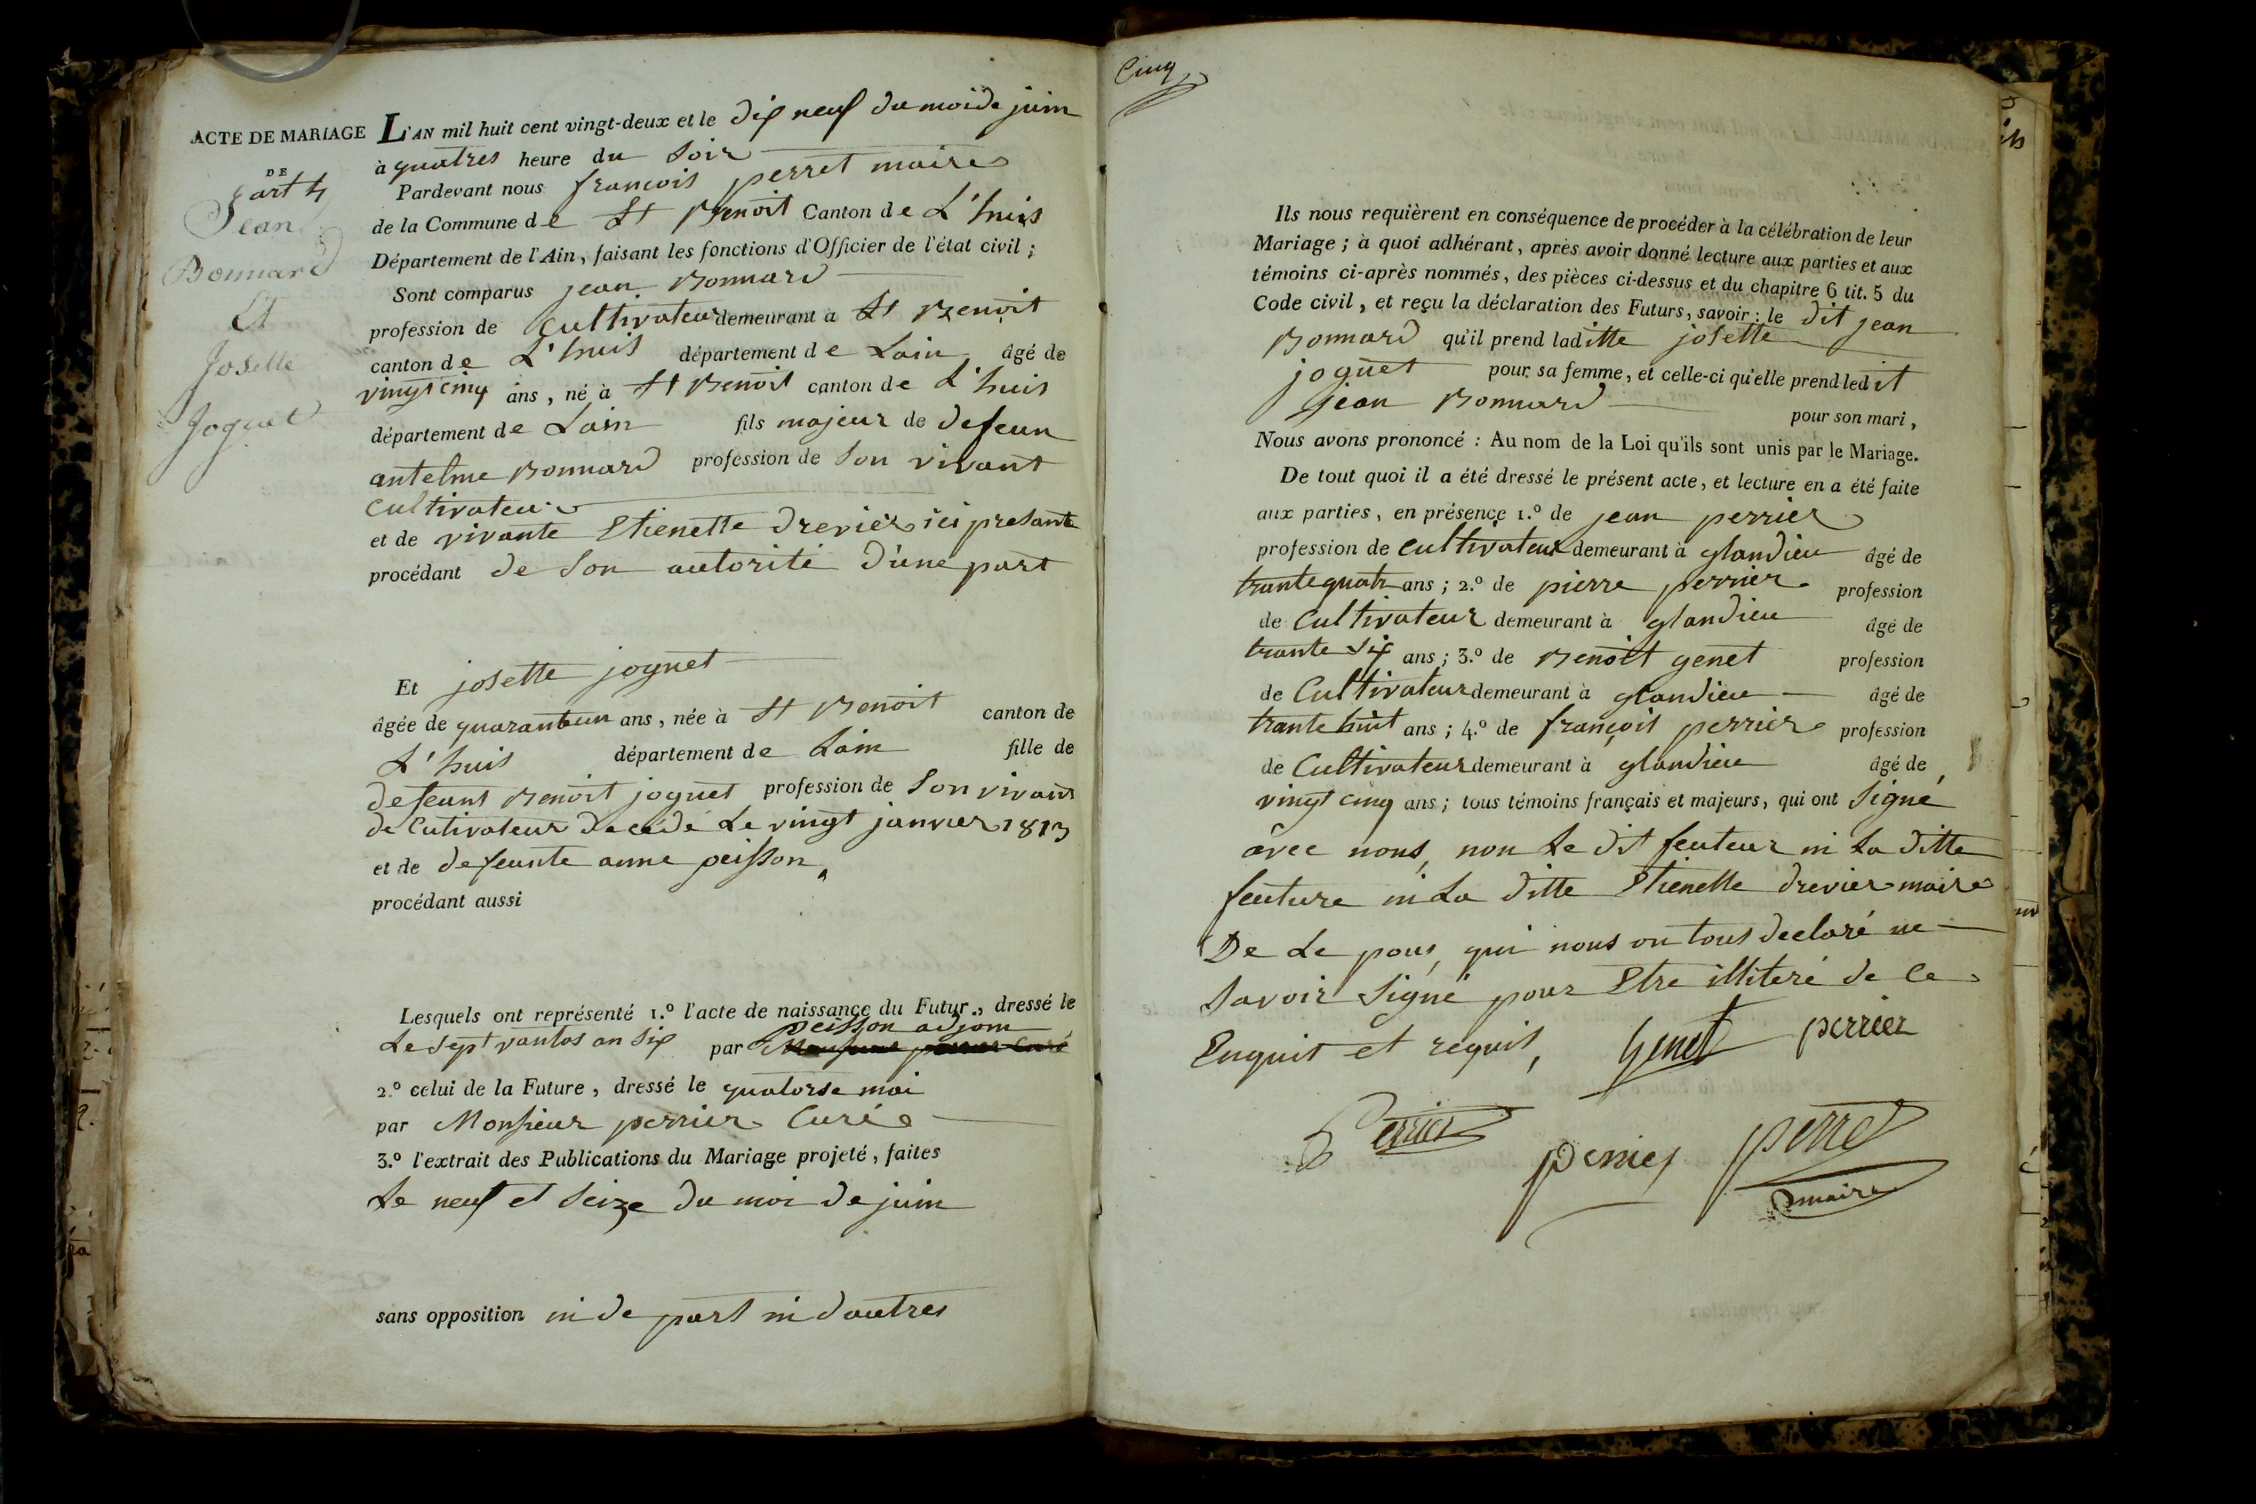 ACTE DE MARIAGE
DE
art 4
Jean
Bonnard
Et
Josette
Joguet
L'AN mil huit cent vingt-deux et le dix neuf du moi de juin
à quatres heure du soir
Pardevant nous francois perret maire
de la Commune de St Benoit Canton de L'huis
Département de l'Ain, faisant les fonctions d'Officier de l'état civil ;
Sont comparus jean Bonnard
profession de cultivateur demeurant à St Benoit
canton de L'huis département de Lain âgé de
vingt cinq ans, né à St Benoit canton de L'huis
département de Lain fils majeur de defeun
antelme Bonnard profession de son vivant
cultivateur
et de vivante Etienette drevier ici presante
procédant de son autorité d'une part
Et josette joguet
âgée de quaranteun ans, née à St Benoit canton de
L'huis département de Lain fille de
defeunt Benoit joguet profession de son vivant
de cutivateur decedé Le vingt janvier 1813
et de defeunte anne peisson
procédant aussi
Lesquels ont représenté 1.º l'acte de naissance du Futur, dressé le
peisson adjoin
Le sept vantos an six par Monsieur perrier Curé
2.º celui de la Future, dressé le quatorse mai
par Monsieur perrier Curé
3.º l'extrait des Publications du Mariage projeté, faites
Le neuf et seize du moi de juin
sans opposition ni de part ni dautres
Cinq
Ils nous requièrent en conséquence de procéder à la célébration de leur
Mariage ; à quoi adhérant, après avoir donné lecture aux parties et aux
témoins ci-après nommés, des pièces ci-dessus et du chapitre 6 tit. 5 du
Code civil, et reçu la déclaration des Futurs, savoir : le dit jean
Bonnard qu'il prend laditte josette
joguet pour sa femme, et celle-ci qu'elle prend ledit
jean Bonnard
pour son mari,
Nous avons prononcé : Au nom de la Loi qu'ils sont unis par le Mariage.
De tout quoi il a été dressé le présent acte, et lecture en a été faite
aux parties, en présence 1.º de jean perrier
profession de cultivateur demeurant à glandieu âgé de
trante quatr ans ; 2.º de pierre perrier profession
de Cultivateur demeurant à glandieu âgé de
trante six ans ; 3.º de Benoit genet profession
de Cultivateur demeurant à glandieu âgé de
trante huit ans ; 4.º de françois perrier profession
de Cultivateur demeurant à glandieu âgé de
vingt cinq ans ; tous témoins français et majeurs, qui ont signé
avec nous, non Le dit feuteur ni La ditte
feuture ni La ditte Etienette drevier maire
De Le pous, qui nous on tous declaré ne
savoir signé pour Etre illiteré de ce
Enquit et requit, Genet perrier
Perrier
perrier perret
maire